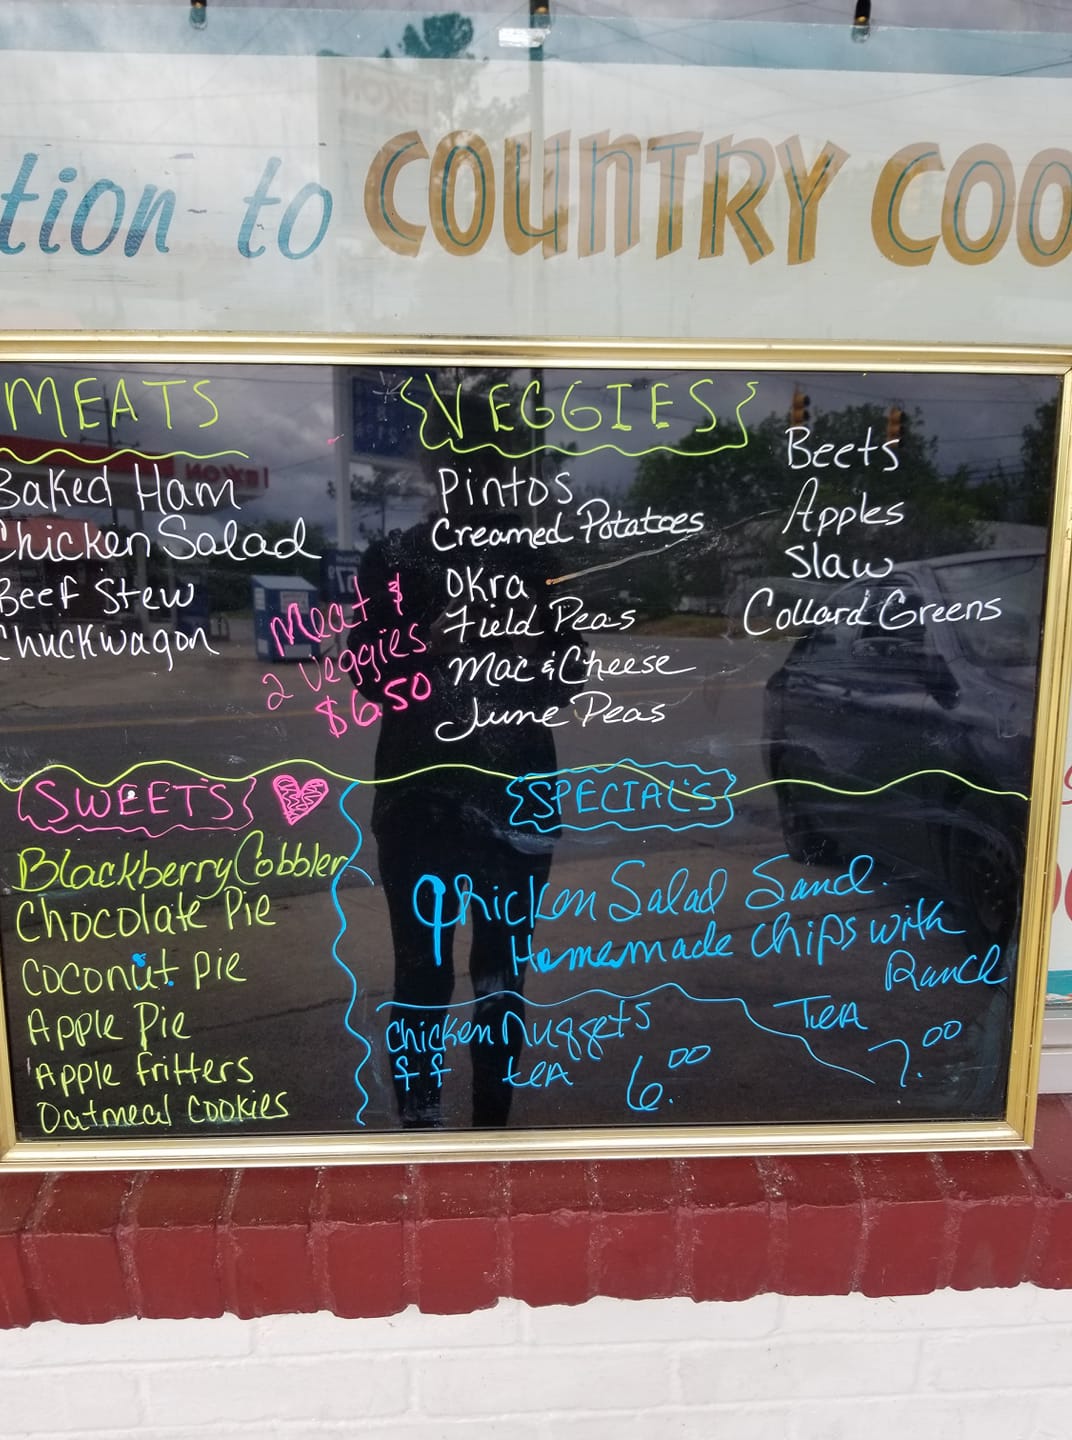 tion to COUNTRY COO
MEATS
Baked Ham
Chicken Salad
Beef Stew
Chuckwagon
Meat &
2 Veggies
$6.50
VEGGIES
Pintos
Creamed Potatoes
Okra
Field Peas
Mac & Cheese
June Peas
Beets
Apples
Slaw
Collard Greens
SWEETS
Blackberry Cobbler
Chocolate Pie
Coconut Pie
Apple Pie
Apple Fritters
Oatmeal Cookies
SPECIAL'S
Chicken Salad Sand.
Homemade Chips with
Ranch
Tea
7.00
Chicken Nuggets
FF tea 6.00
EXXON
EXXON